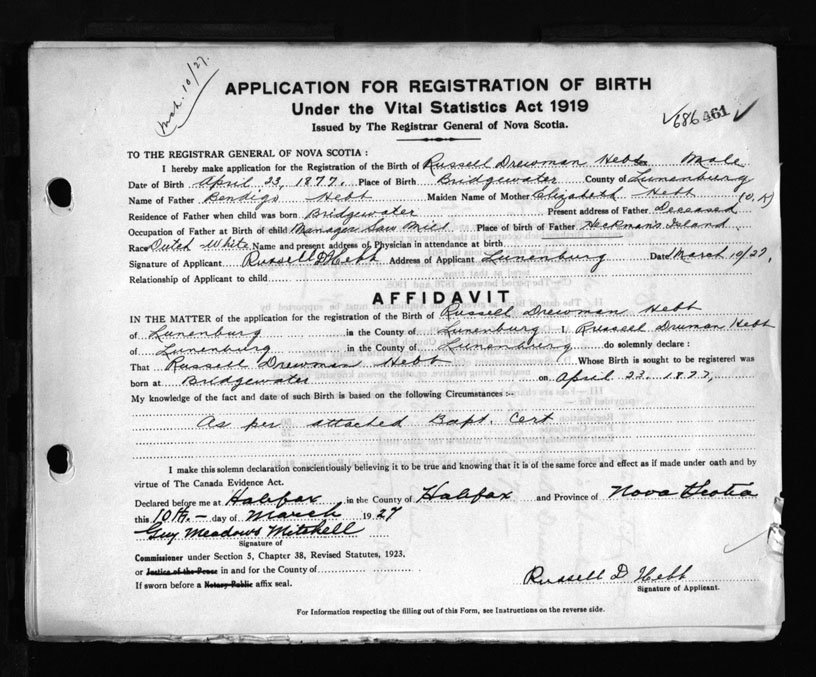 Mch. 10/27.
APPLICATION FOR REGISTRATION OF BIRTH
Under the Vital Statistics Act 1919
Issued by The Registrar General of Nova Scotia.
✓686 461 ✓
TO THE REGISTRAR GENERAL OF NOVA SCOTIA :
I hereby make application for the Registration of the Birth of Russell Drewman Hebb Sex Male
Date of Birth April 23, 1877. Place of Birth Bridgewater County of Lunenburg
Name of Father Bendigo Hebb Maiden Name of Mother Elizabeth Hebb (O.K)
Residence of Father when child was born Bridgewater Present address of Father Deceased
Occupation of Father at Birth of child Manager Saw Mill Place of birth of Father Heckman's Island
Race Dutch - White Name and present address of Physician in attendance at birth
Signature of Applicant Russell D Hebb Address of Applicant Lunenburg Date March 10/27.
Relationship of Applicant to child
AFFIDAVIT
IN THE MATTER of the application for the registration of the Birth of Russell Drewman Hebb
of Lunenburg in the County of Lunenburg I, Russell Druman Hebb
of Lunenburg in the County of Lunenburg do solemnly declare :
That Russell Drewman Hebb Whose Birth is sought to be registered was
born at Bridgewater on April 23. 1877,
My knowledge of the fact and date of such Birth is based on the following Circumstances :-
As per attached Bapt. Cert
I make this solemn declaration conscientiously believing it to be true and knowing that it is of the same force and effect as if made under oath and by
virtue of The Canada Evidence Act.
Declared before me at Halifax in the County of Halifax and Province of Nova Scotia
this 10th.- day of March 1927
Guy Meadows Mitchell
Signature of
Commissioner under Section 5, Chapter 38, Revised Statutes, 1923.
or Justice of the Peace in and for the County of
If sworn before a Notary Public affix seal.
Russell D Hebb
Signature of Applicant.
For Information respecting the filling out of this Form, see Instructions on the reverse side.